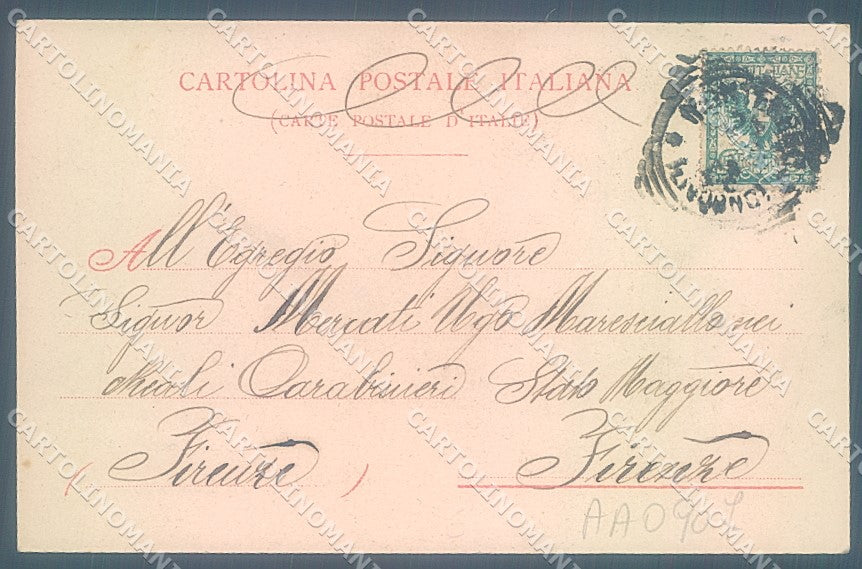 CARTOLINA POSTALE ITALIANA
(CARTE POSTALE D'ITALIE)
All'Egregio Signore
Signor Mercati Ugo Maresciallo nei
Reali Carabinieri Stato Maggiore
Firenze Firenze
( )
AA0907
CARTOLINOMANIA